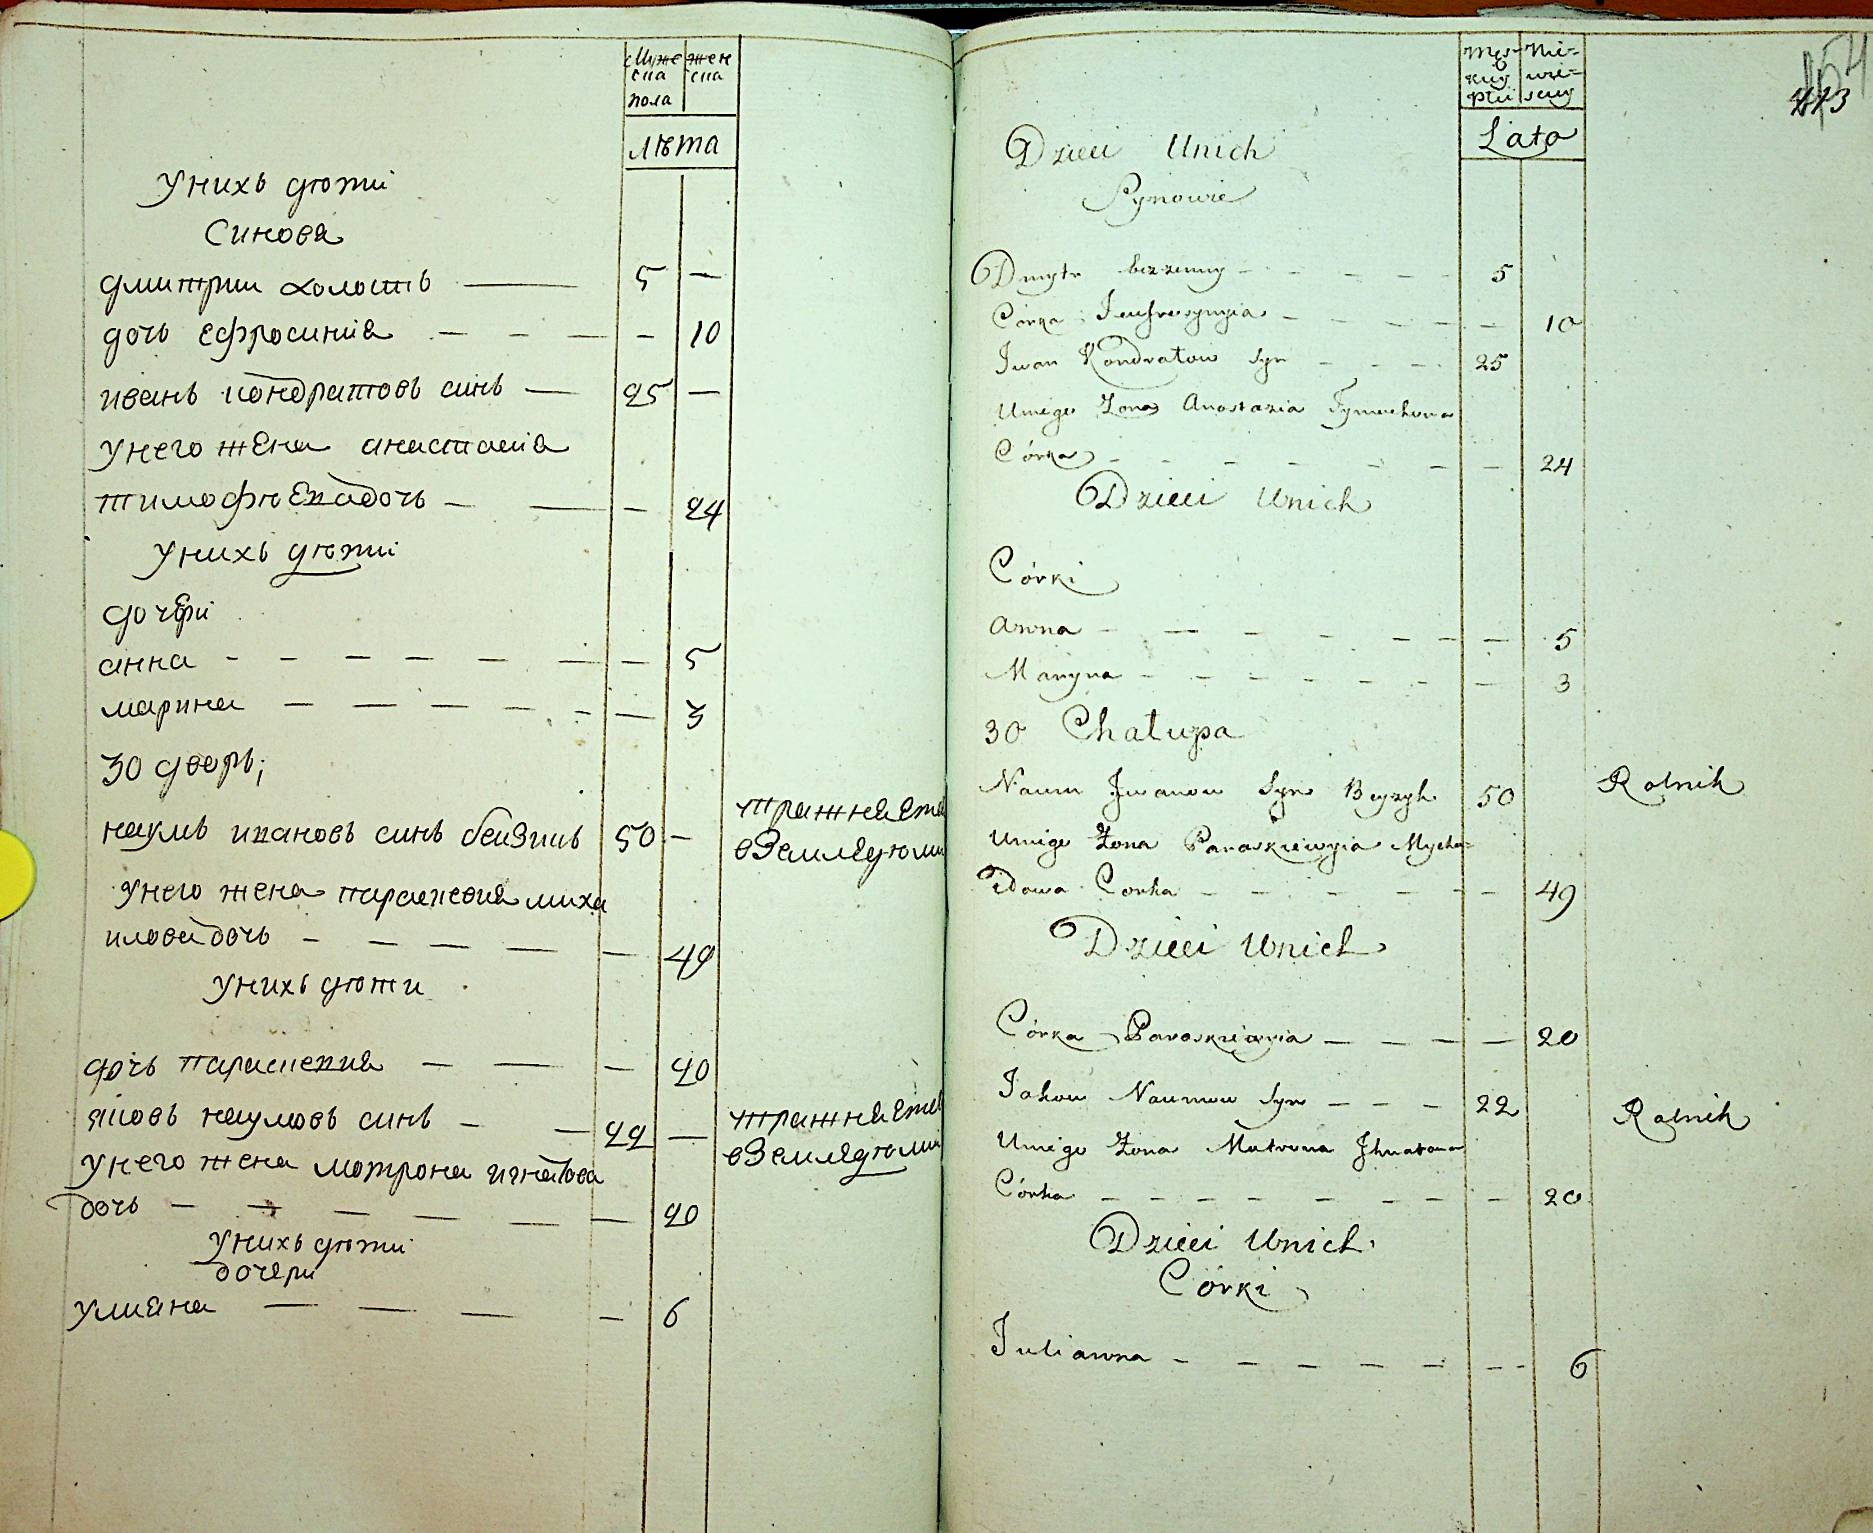 Мужеска пола
женска
лѣта
У нихъ дѣти
Синовя
Дмитрии холостъ — 5 —
дочь Ефросиния — — — — 10
иванъ кондратовъ синъ — 25 —
У него жена анастасия
тимофѣева дочь — — — 24
У нихъ дѣти
дочери
анна — — — — — — — 5
марина — — — — — — 3
30 дворъ;
наумъ ивановъ синъ 50 —
у него жена параскевия миха
илова дочь — — — — — 49
У нихъ дѣти
дочь параскевия — — — 20
яковъ наумовъ синъ — — 22 —
У него жена мотрона игнатова
дочь — — — — — — 20
У нихъ дѣти
дочери
улияна — — — — 6
Lato
Dzieci Unich
Synowie
Dmytr bezzenny — — — — 5
Córka — — — — — 10
Iwan Kondratow Syn — — — 25
Uniego Żona Anastazia
Córka — — — — — — — 24
Dzieci Unich
Córki
Anna — — — — — — — 5
Maryna — — — — — — — 3
30 Chałupa
Naum Iwanow Syn 50 Rolnik
Uniego Żona Paraskiewyia Mycha=
Córka — — — — — — 49
Dzieci Unich
Córka Paraskiewia — — — — 20
Jakow Naumow Syn — — — 22 Rolnik
Uniego Żona Matrona Ihnatowa
Córka — — — — — — — 20
Dzieci Unich
Córki
Julianna — — — — — — 6